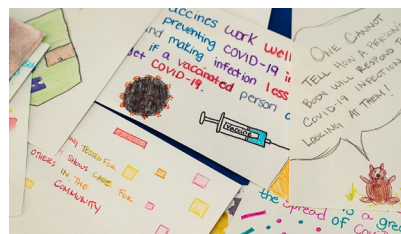 accines work well
preventing COVID-19
and making infection less
if a vaccinated person
COVID-19.
VACCINE
ONE CANNOT
TELL HOW A PERSON'S
BODY WILL RESPOND TO
COVID-19 INFECTION
LOOKING AT THEM!
TESTED FOR
OTHERS SHOWS CARE FOR
IN THE
COMMUNITY
is a grea
the spread of Covi